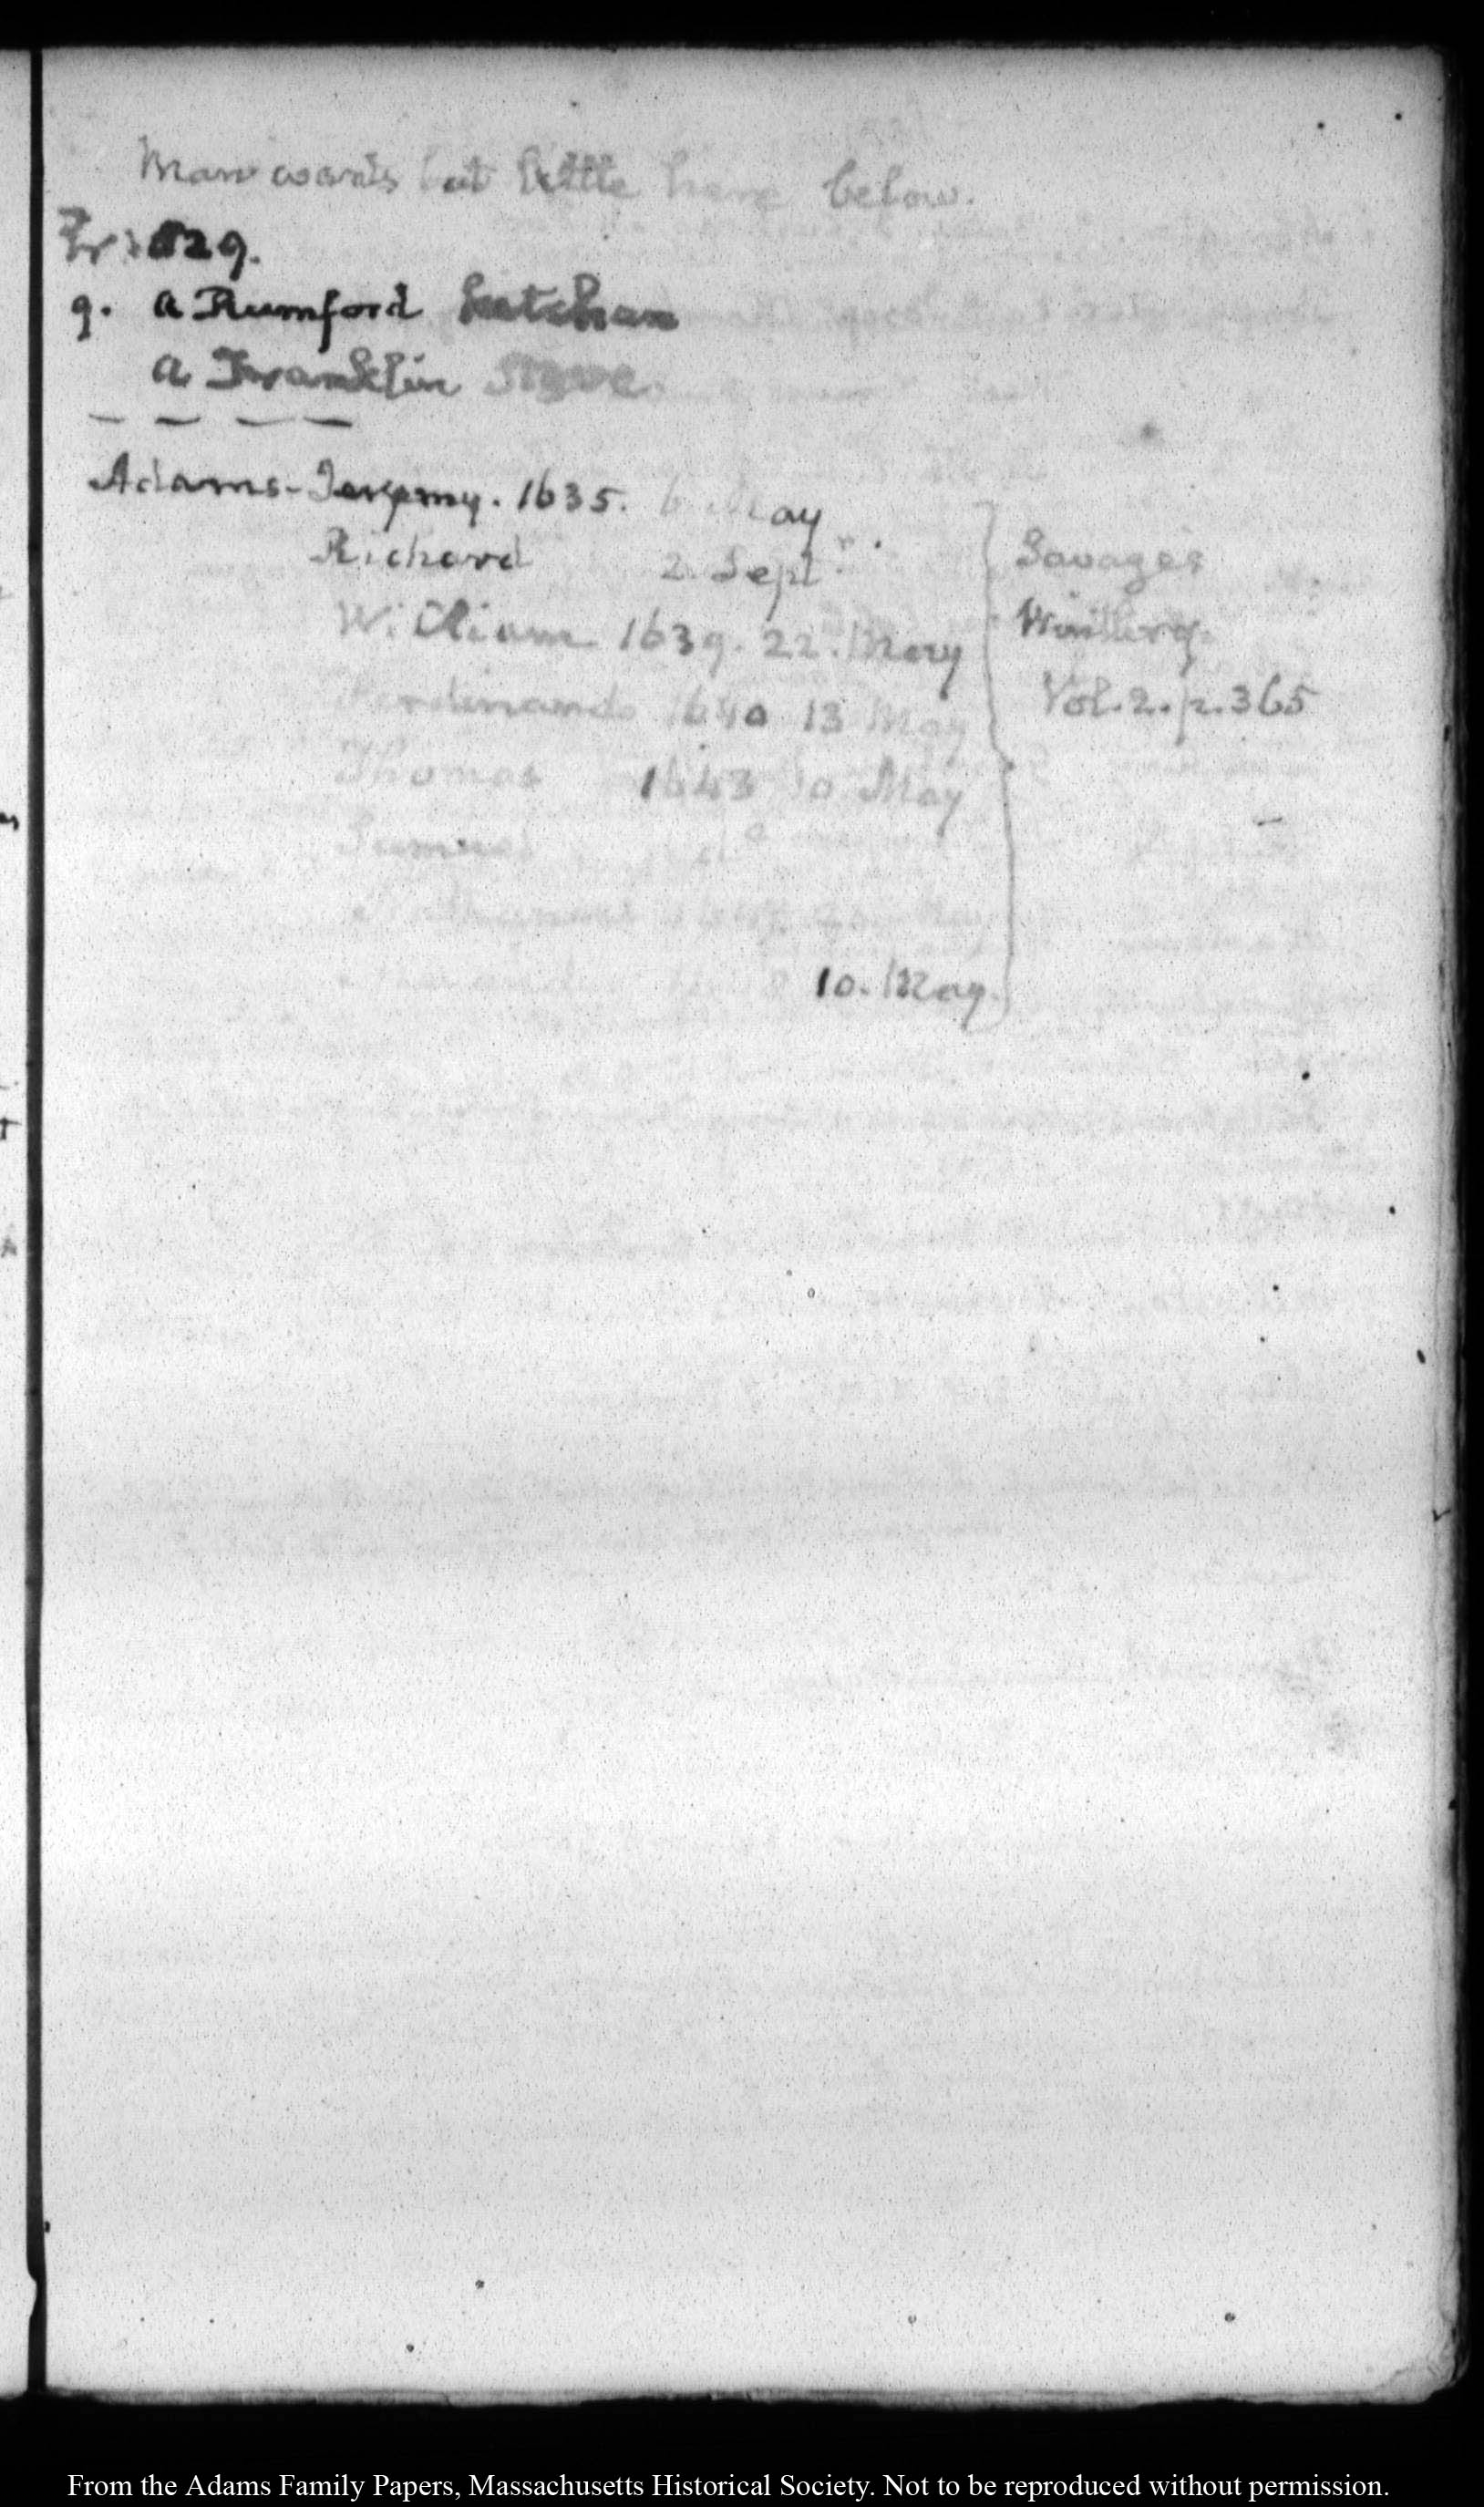 Man wants but little here below.
1829.
9. a Rumford Kitchen
a Franklin Stove.
Adams-Jeremy. 1635. 6 May
Richard 2. Sept.r
William 1639. 22. May
Ferdinando 1640 13 May
Thomas 1643 10 May
Samuel do
Nathaniel
10. May.
Savage's
Winthrop
Vol. 2. p. 365
From the Adams Family Papers, Massachusetts Historical Society. Not to be reproduced without permission.